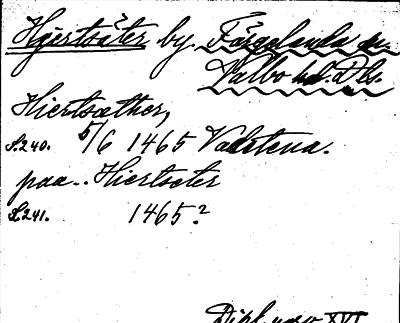 Hjertsäter by Färgelanda sn.
Valbo hd. Dls.
Hiertsæther,
S.240. 5/6 1465 Vadstena.
paa.. Hiertseter
S.241. 1465?
Dipl. norv XVI